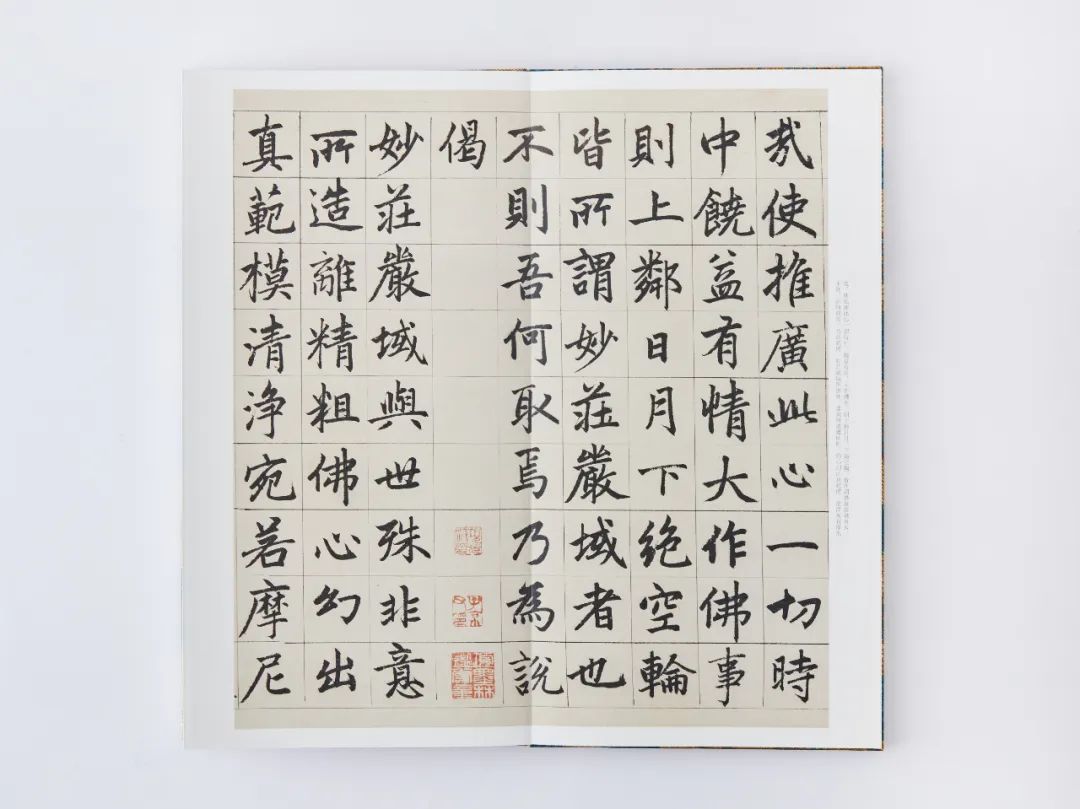 哉使推廣此心一切時
中饒益有情大作佛事
則上鄰日月下絶空輪
皆所謂妙莊嚴域者也
不則吾何取焉乃為說
偈
妙莊嚴域與世殊非意
所造離精粗佛心幻出
真範模清淨宛若摩尼